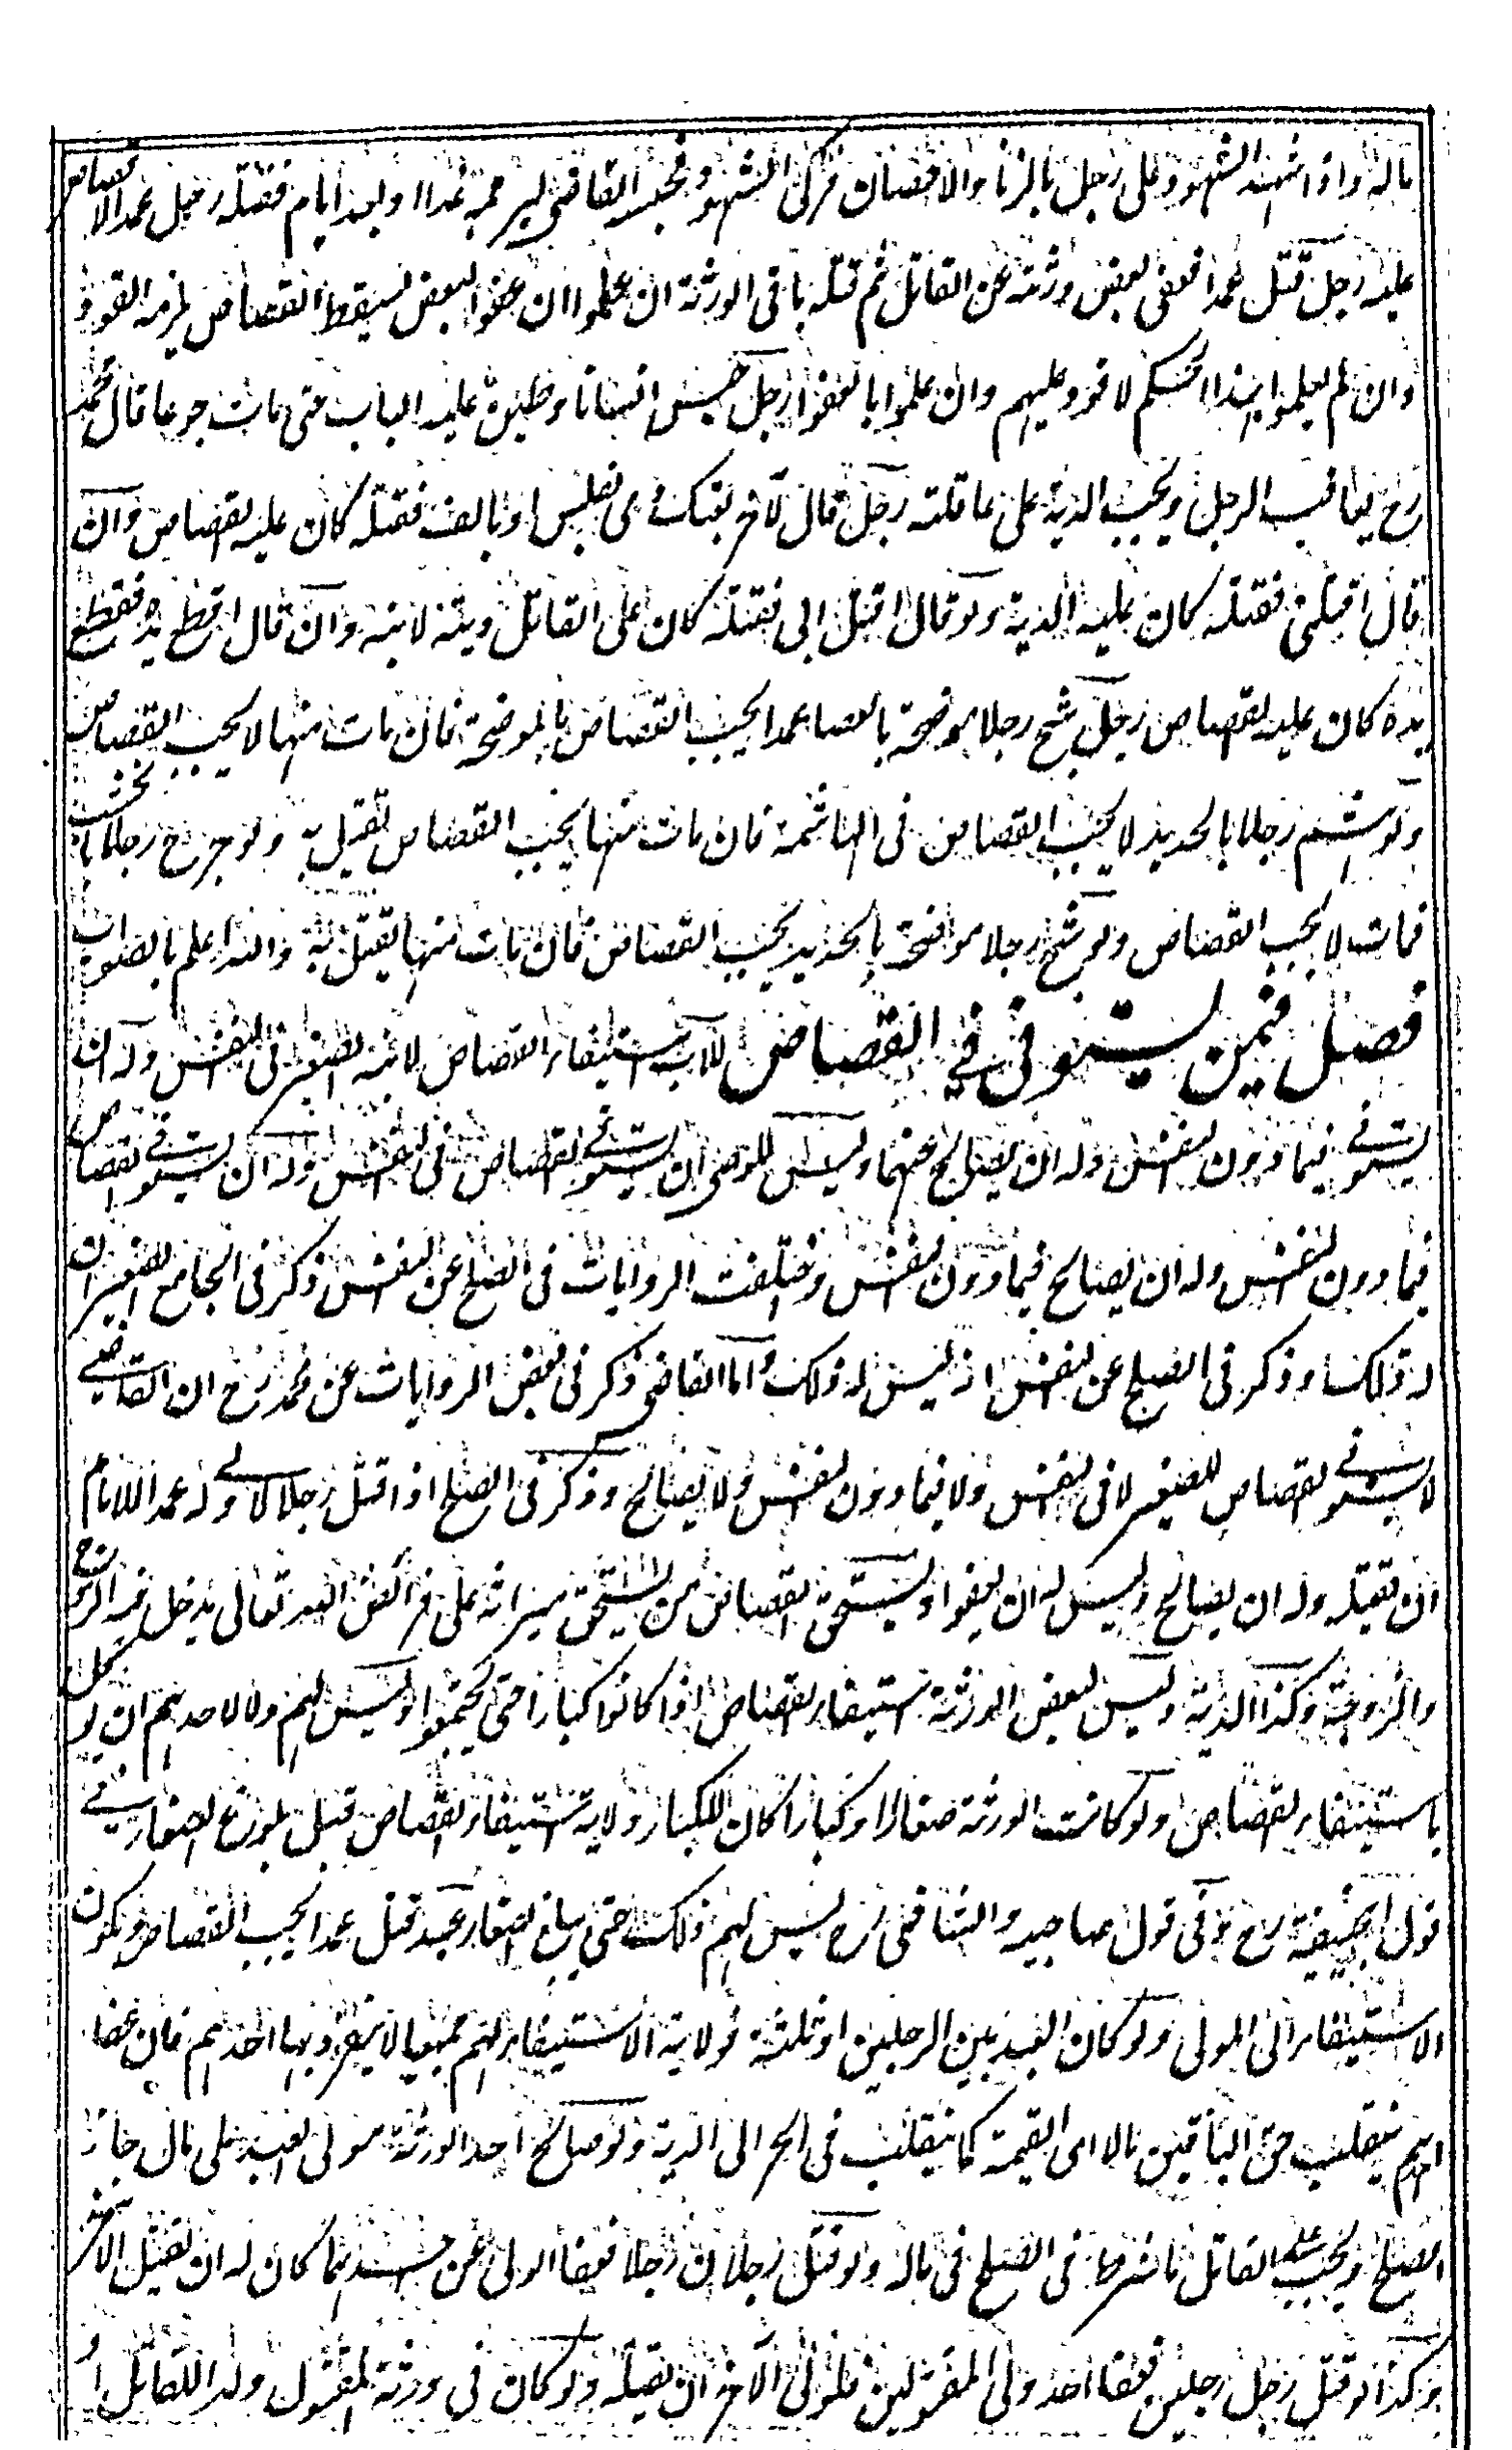 ماله واذا شهد الشهود على رجل بالزنا والاحصان فزكى الشهود فحبسه القاضي ليرجمه غدا او بعد ايام فقتله رجل عمدا لا قصاص
عليه رجل قتل عمدا فعفى بعض ورثته عن القاتل ثم قتله باقي الورثة ان علموا ان عفو البعض يسقط القصاص يلزمه القود و
وان لم يعلموا بهذا الحكم لا قود عليهم وان علموا بالعفو رجل حبس انسانا وطين عليه الباب حتى مات جوعا قال محمد
رح يعاقب الرجل ويجب الدية على عاقلته رجل قال لآخر بعتك دمي بفلس او بالف فقتله كان عليه القصاص وان
قال اقتلني فقتله كان عليه الدية ولو قال اقتل ابي فقتله كان على القاتل ديته لابنه وان قال اقطع يده فقطع
يده كان عليه القصاص رجل شج رجلا موضحة بالعصا عمدا يجب القصاص بالموضحة فان مات منها لا يجب القصاص
ولو هشم رجلا بالحديد لا يجب القصاص في الهاشمة فان مات منها يجب القصاص لقتل به ولو جرح رجلا بالخشب
فمات لا يجب القصاص ولو شج رجلا موضحة بالحديد يجب القصاص فان مات منها يقتل به والله اعلم بالصواب
فصل فيمن يستوفى في القصاص للاب استيفاء القصاص لابنه الصغير في النفس وله ان
يستوفي فيما دون النفس وله ان يصالح عنهما وليس للوصي ان يستوفي القصاص في النفس وله ان يستوفي القصاص
فيما دون النفس وله ان يصالح فيما دون النفس واختلفت الروايات في الصلح عن النفس ذكر في الجامع الصغير ان
له ذلك وذكر في الصلح عن النفس اذ ليس له ذلك واما القاضي ذكر في بعض الروايات عن محمد رح ان القاضي
لا يستوفي القصاص للصغير لا في النفس ولا فيما دون النفس ولا يصالح وذكر في الصلح اذا قتل رجلا لا ولي له عمدا للامام
ان يقتله وله ان يصالح وليس له ان يعفو ويستحق القصاص من يستحق ميراثه على فرائض الله تعالى يدخل فيه الزوج
والزوجة وكذا الدية وليس لبعض الورثة استيفاء القصاص اذا كانوا كبارا حتى يجتمعوا وليس لهم ولا لاحدهم ان يوكل
باستيفاء القصاص ولو كانت الورثة صغارا وكبارا كان للكبار ولاية استيفاء القصاص قبل بلوغ الصغار في
قول ابي حنيفة رح وفي قول صاحبيه والشافعي رح ليس لهم ذلك حتى يبلغ الصغار عبد قتل عمدا يجب القصاص ويكون
الاستيفاء الى المولى ولو كان العبد بين الرجلين او ثلثة فولاية الاستيفاء لهم جميعا لا ينفرد بها احدهم فان عفا
احدهم ينقلب حق الباقين مالا اى القيمة كما ينقلب في الحر الى الدية ولو صالح احد الورثة مولى العبد على مال جاز
الصلح ويجب على القاتل ما شرط في الصلح في ماله ولو قتل رجلان رجلا فعفا الولي عن احدهما كان له ان يقتل الآخر
وكذا لو قتل رجل رجلين فعفا احد ولي المقتولين فلولي الآخر ان يقتله ولو كان في ورثة المقتول ولد القاتل او